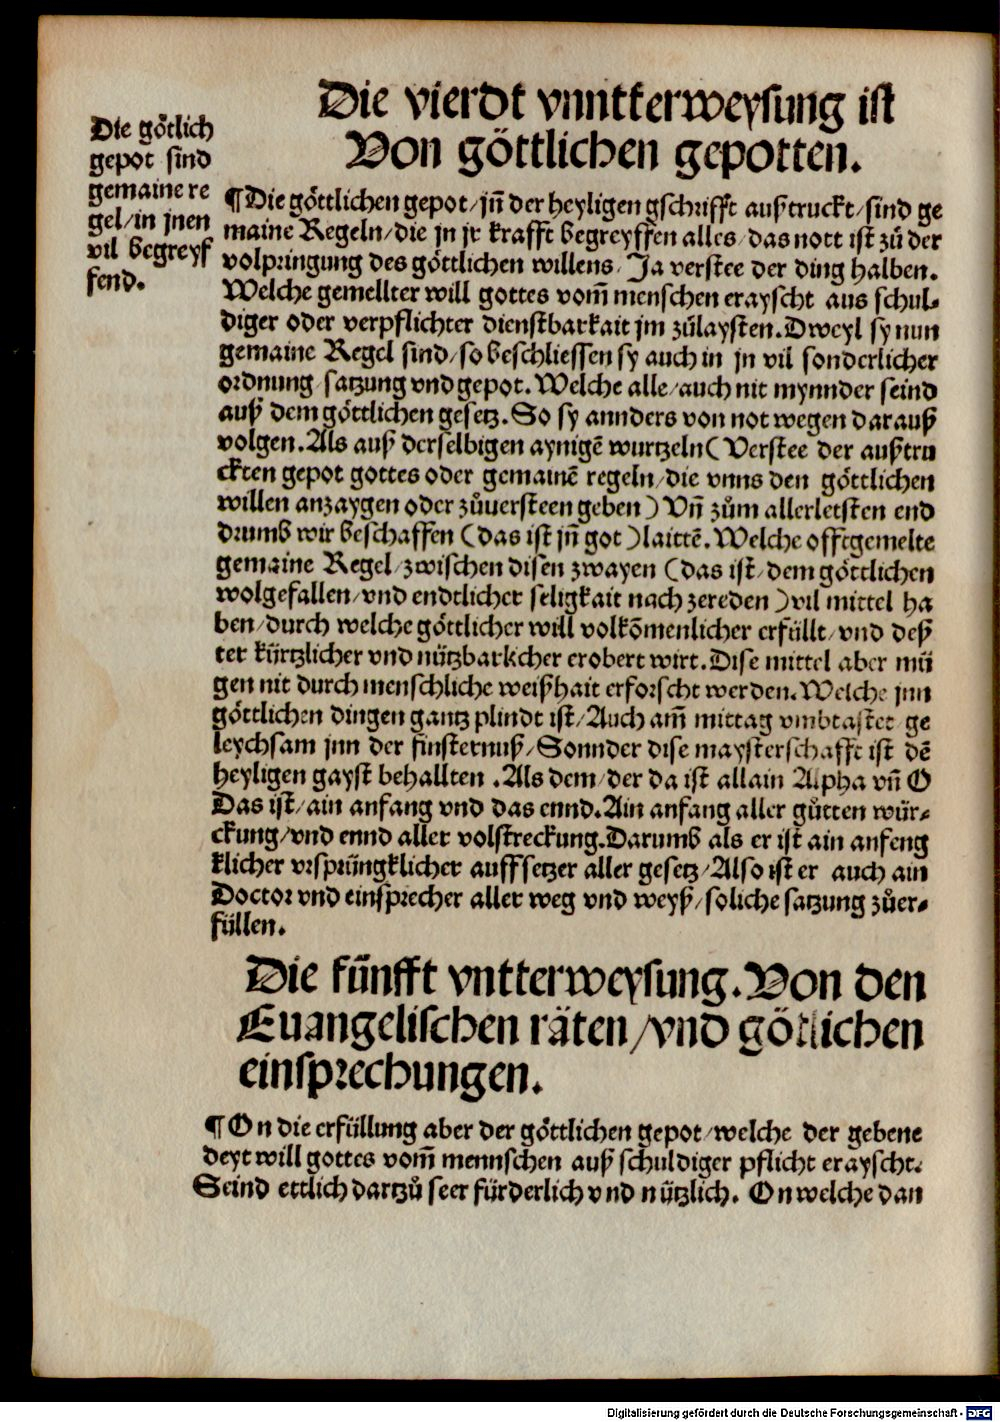 Die vierdt vnntterweysung ist
Von göttlichen gepotten.
Die götlich
gepot sind
gemaine re
gel/in jnen
vil begreyf
fend.
¶Die göttlichen gepot/jn̄ der heyligen gschrifft außtruckt/sind ge
maine Regeln/die jn jr krafft begreyffen alles/das nott ist zů der
volpringung des göttlichen willens/Ja verstee der ding halben.
Welche gemellter will gottes vom̄ menschen erayscht aus schul-
diger oder verpflichter dienstbarkait jm zůlaysten. Dweyl sy nun
gemaine Regel sind/so beschliessen sy auch in jn vil sonderlicher
ordnung/satzung vnd gepot. Welche alle/auch nit mynnder seind
auß dem göttlichen gesetz. So sy annders von not wegen darauß
volgen. Als auß derselbigen aynigē wurtzeln (Verstee der außtru
ckten gepot gottes oder gemainē regeln/die vnns den göttlichen
willen anzaygen oder zůuersteen geben) Vn̄ zům allerletsten end
drumb wir beschaffen (das ist jn̄ got) laittē. Welche offtgemelte
gemaine Regel/zwischen disen zwayen (das ist/dem göttlichen
wolgefallen/vnd endtlicher seligkait nach zereden) vil mittel ha
ben/durch welche göttlicher will volkōmenlicher erfüllt/vnd deß
ter kürtzlicher vnd nützbarlicher erobert wirt. Dise mittel aber mü
gen nit durch menschliche weißhait erforscht werden. Welche jnn
göttlichen dingen gantz plindt ist/Auch am̄ mittag vmbtastet ge
leychsam jnn der finsternuß/Sonnder dise maysterschafft ist dē
heyligen gayst behallten. Als dem/der da ist allain Alpha vn̄ O
Das ist/ain anfang vnd das ennd. Ain anfang aller gůtten wür-
ckung/vnd ennd aller volstreckung. Darumb als er ist ain anfeng
klicher vrsprüngklicher auffsetzer aller gesetz/Also ist er auch ain
Doctor vnd einsprecher aller weg vnd weyß/soliche satzung zůer-
füllen.
Die fünfft vntterweysung. Von den
Euangelischen räten/vnd götlichen
einsprechungen.
¶On die erfüllung aber der göttlichen gepot/welche der gebene
deyt will gottes vom̄ mennschen auß schuldiger pflicht erayscht.
Seind ettlich dartzů seer fürderlich vnd nützlich. On welche dan
Digitalisierung gefördert durch die Deutsche Forschungsgemeinschaft - DFG